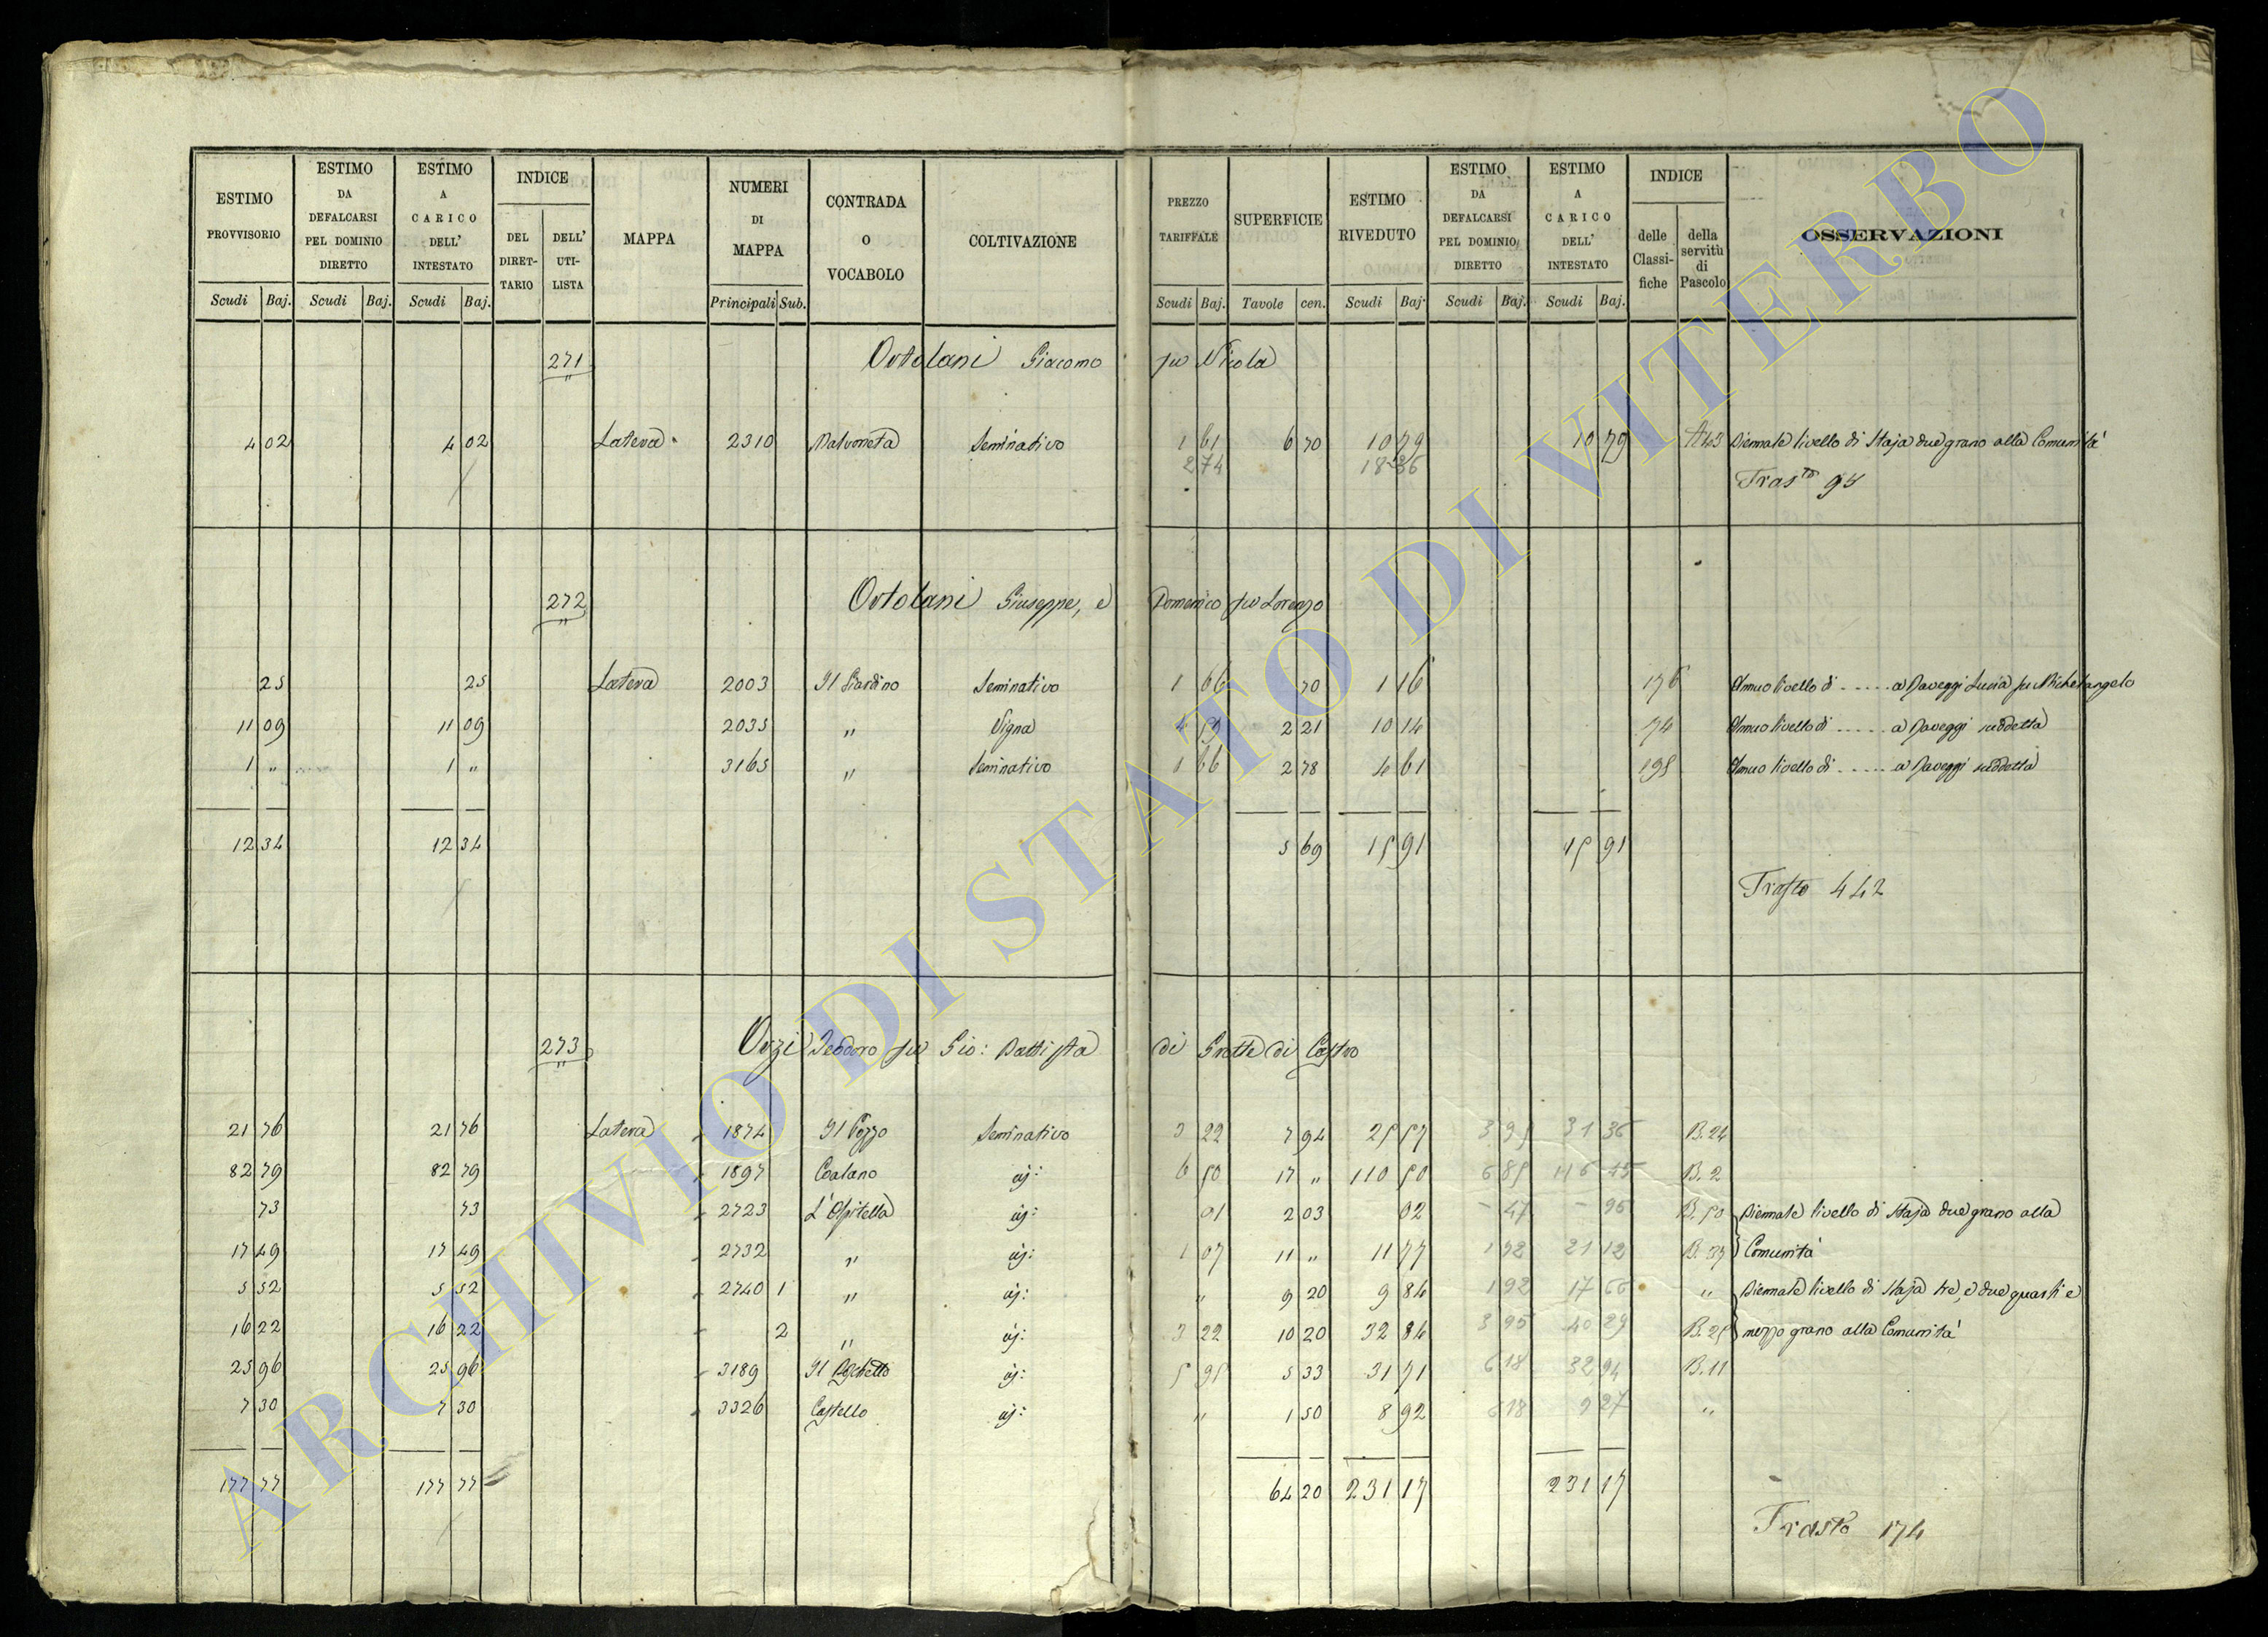 ESTIMO PROVVISORIO ESTIMO DA DEFALCARSI PEL DOMINIO DIRETTO ESTIMO A CARICO DELL' INTESTATO INDICE DEL DIRET-TARIO DELL' UTI-LISTA MAPPA NUMERI DI MAPPA CONTRADA O VOCABOLO COLTIVAZIONE PREZZO TARIFFALE SUPERFICIE ESTIMO RIVEDUTO ESTIMO DA DEFALCARSI PEL DOMINIO DIRETTO ESTIMO A CARICO DELL' INTESTATO INDICE delle Classi-fiche della servitù di Pascolo OSSERVAZIONI
Scudi Baj. Scudi Baj. Scudi Baj. Principali Sub. Scudi Baj. Tavole cen. Scudi Baj. Scudi Baj. Scudi Baj.
271 Ortolani Giacomo fu Nicola
4 02 4 02 Latera 2310 Seminativo 1 61 6 70 10 79 10 79 Biennale livello di Staja due grano alla Comunità
2 74 18 36 Tras.to 95
272 Ortolani Giuseppe, e Domenico fu Lorenzo
25 25 Latera 2003 Il Giardino Seminativo 1 66 70 1 16 176 Annuo livello di ..... a Paveggi Lucia fu Michelangelo
11 09 11 09 2035 " Vigna 4 59 2 21 10 14 74 Annuo livello di ..... a Paveggi suddetta
1 " 1 " 3165 " Seminativo 1 66 2 78 4 61 195 Annuo livello di ..... a Paveggi suddetta
12 34 12 34 5 69 15 91 15 91
Trasto 442
273 Orzi Teodoro fu Gio: Battista di Grotte di Castro
21 76 21 76 Latera 1874 Il Pozzo Seminativo 3 22 7 94 25 57 3 95 31 36 B. 24
82 79 82 79 1897 Coalano id: 6 50 17 " 110 50 6 85 116 45 B. 2
73 73 2723 L'Ospitella id: 01 2 03 02 - 47 - 95 B. 50 Biennale livello di Staja due grano alla
17 49 17 49 2732 " id: 1 07 11 " 11 77 1 92 21 12 B. 37 Comunità
5 52 5 52 2740 1 " id: " 9 20 9 84 1 92 17 66 " Biennale livello di Staja tre, e due quarti e
16 22 16 22 2 " id: 3 22 10 20 32 84 3 95 40 29 B. 25 mezzo grano alla Comunità
25 96 25 96 3189 Il Poschetto id: 5 95 5 33 31 71 6 18 32 94 B. 11
7 30 7 30 3326 Castello id: " 1 50 8 92 6 18 9 27 "
177 77 177 77 64 20 231 17 231 17
Trasto 174
ARCHIVIO DI STATO DI VITERBO